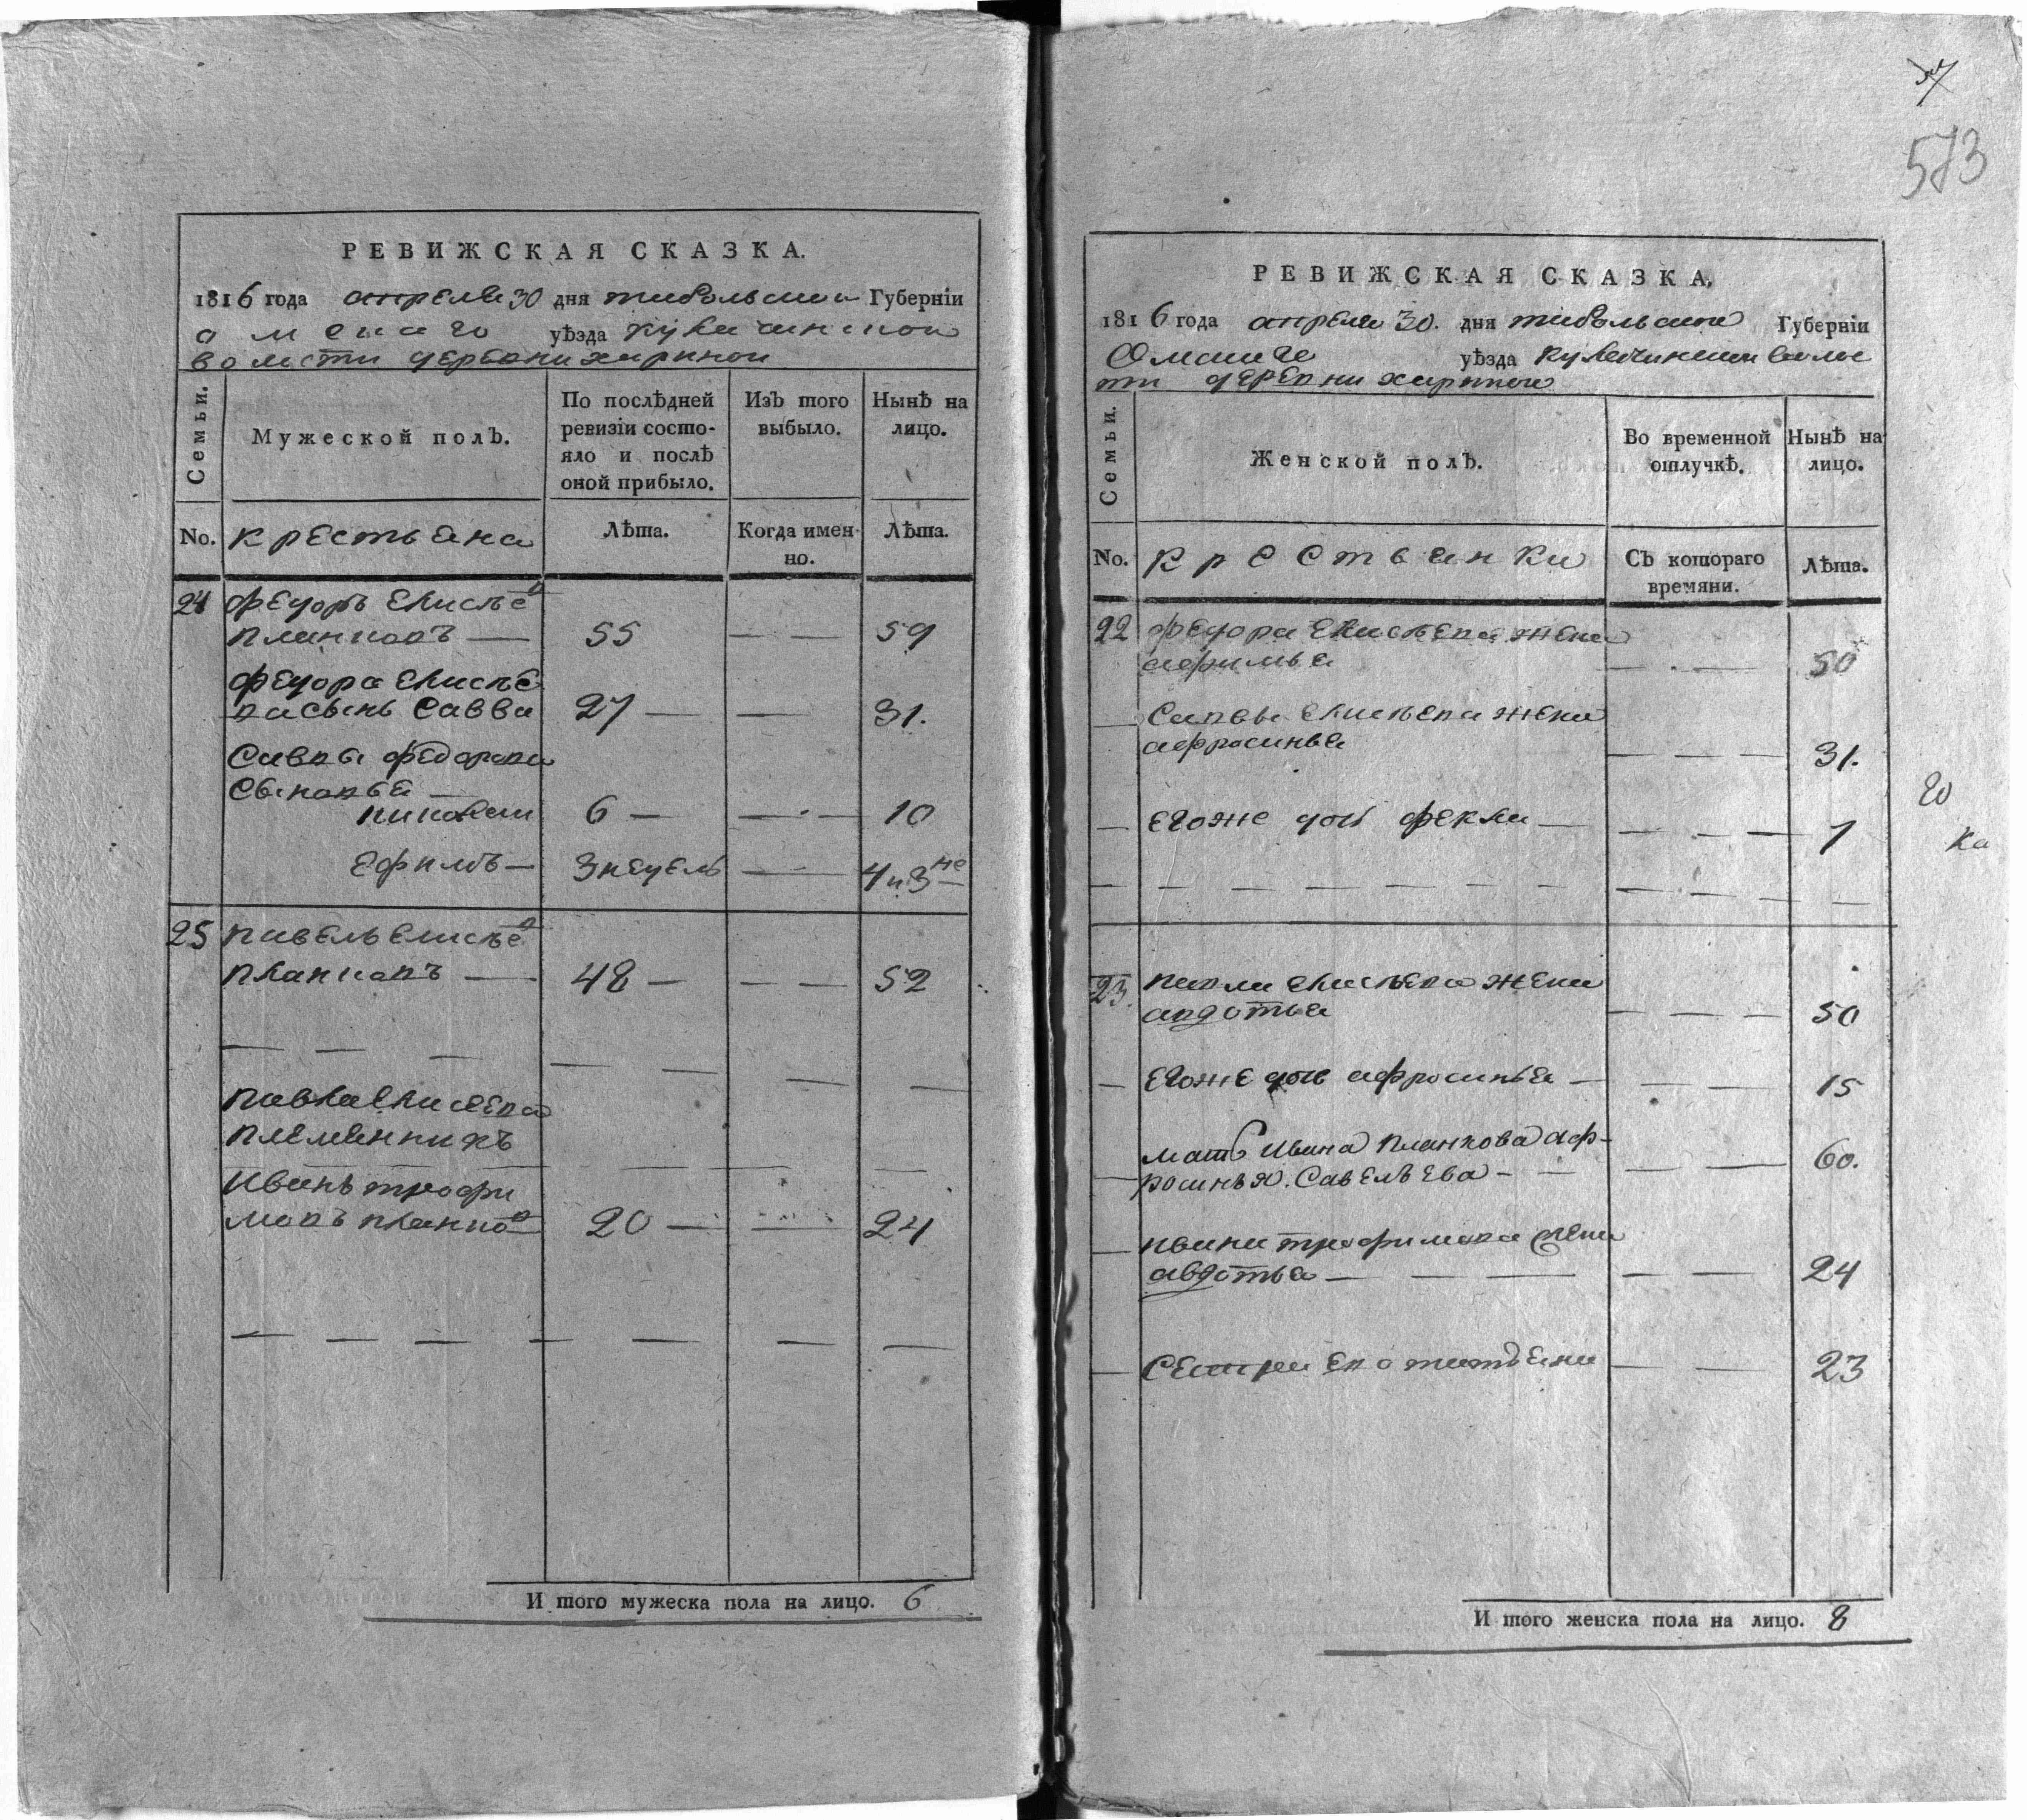 РЕВИЖСКАЯ СКАЗКА.
1816 года апреля 30 дня тобольской Губернїи
омскаго уѣзда куличинской
волости деревни хариной
Семьи.
Мужеской полъ.
По послѣдней ревизїи состояло и послѣ оной прибыло.
Изъ того выбыло.
Нынѣ на лицо.
No. крестьяна
Лѣта.
Когда именно.
Лѣта.
24 федоръ елисѣев
планковъ — 55 — — 59
федора елисѣе
ва сынь Савва 27 — — 31.
Саввы федорова
Сыновья —
6 — — 10
ефимъ — 3 недель — 4 и 3 не
25 павель елисѣев
планковъ — 48 — — — 52
павла елисеева
племянникъ
иванъ трофи
мовъ планков 20 — — 24
И того мужеска пола на лицо. 6
573
РЕВИЖСКАЯ СКАЗКА,
1816 года апреля 30. дня тобольской Губернїи
Омскаго уѣзда куличинской волос
ти деревни хариной
Семьи.
Женской полъ.
Во временной отлучкѣ.
Нынѣ на лицо.
No. крестьянки
Съ котораго времяни.
Лѣта.
22 федора елисѣева жена
афимья — — 50
Саввы елисѣева жена
афросинья — — — 31.
— егоже дочь фекла — — — — 1
23. павла елисѣева жена
авдотья — — — 50
— егоже дочь афросинья — — — 15
мать ивана планкова аф-
росинья. Савельева — — — — 60.
— ивана трофимова жена
авдотья — — — — — 24
— Сестра ево татьяна — — 23
го
ка
И того женска пола на лицо. 8